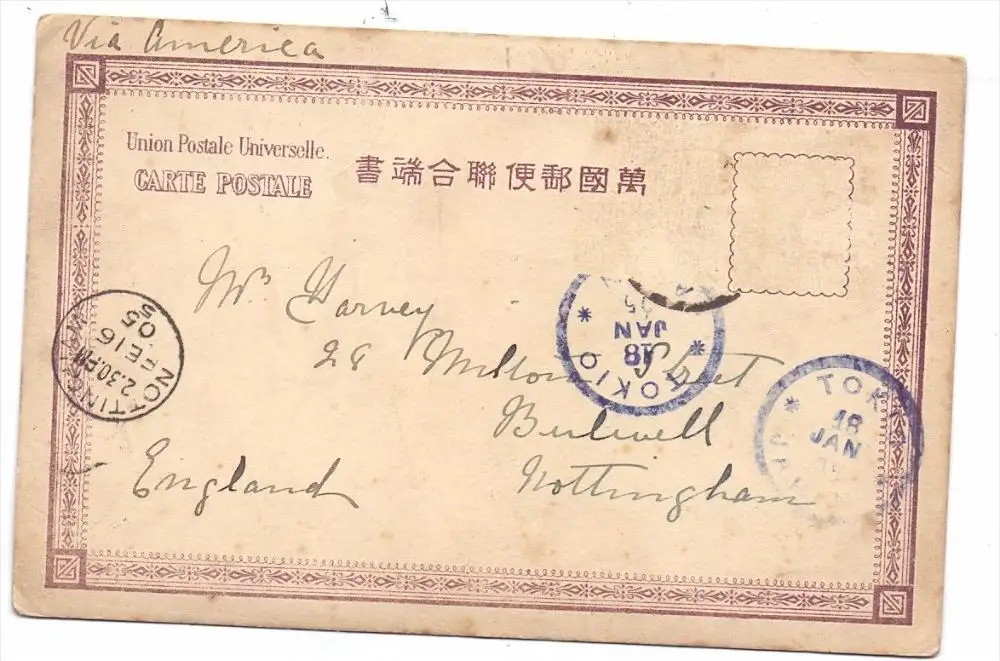 Via America
Union Postale Universelle.
CARTE POSTALE
書端合聯便郵國萬
Mrs Harvey
28 Milton Street
Bulwell
Nottingham
England
NOTTINGHAM
2.30PM
FE 16
05
TOKIO
18
JAN
05
TOK
18
JAN